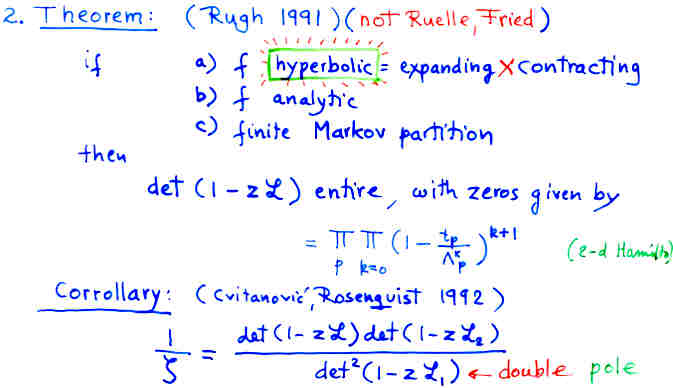 2. Theorem: (Rugh 1991) (not Ruelle, Fried)
if a) f hyperbolic = expanding X contracting
b) f analytic
c) finite Markov partition
then
det (1 - z ℒ) entire, with zeros given by
= ∏_p ∏_{k=0} (1 - t_p/Λ_p^k)^{k+1} (2-d Hamilt)
Corrollary: (Cvitanović, Rosenquist 1992)
1/ζ = det (1 - z ℒ) det (1 - z ℒ₂) / det² (1 - z ℒ₁) ← double pole